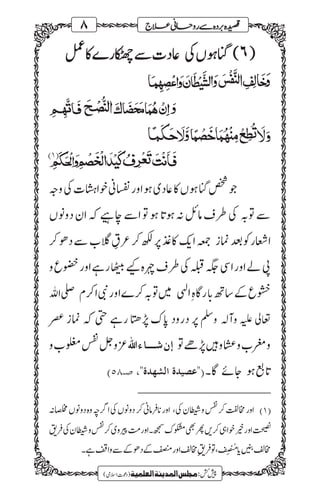 قصیدہ بردہ سے روحانی علاج
۸
(۶) گناہوں کی عادت سے چھٹکارے کا عمل
وَخَالِفِ النَّفْسَ وَالشَّیْطَانَ وَاعْصِهِمَا
وَاِنْ هُمَا مَحَضَاكَ النُّصْحَ فَاتَّهِمِ
وَلَا تُطِعْ مِنْهُمَا خَصْمًا وَّلَا حَكَمًا
فَاَنْتَ تَعْرِفُ كَیْدَ الْخَصْمِ وَالْحَكَمِ (۱)
جو شخص گناہوں کا عادی ہو اور نفسانی خواہشات کی وجہ
سے توبہ کی طرف مائل نہ ہوتا ہو تو اسے چاہیے کہ ان دونوں
اشعار کو بعد نماز جمعہ ایک کاغذ پر لکھ کر عرقِ گلاب سے دھو کر
پی لے اور اسی جگہ قبلہ کی طرف چہرہ کیے بیٹھا رہے اور خضوع و
خشوع کے ساتھ بارگاہِ الٰہی میں توبہ کرے اور نبی اکرم صلی اللہ
تعالی علیہ وآلہ وسلم پر درود پاک پڑھتا رہے حتی کہ نماز عصر
و مغرب و عشاء وہیں پڑھے تو اِن شاءاللہ عزوجل نفس مغلوب و
تابع ہو جائے گا۔ ("عصیدۃ الشھدۃ"، ص۵۸)
(۱) اور مخالفت کر نفس و شیطان کی، اور نافرمانی کر دونوں کی اگرچہ وہ دونوں مخلصانہ
نصیحت اور خیر خواہی کریں پھر بھی مشکوک سمجھ۔ اور مت پیروی کر نفس و شیطان کی فریق
مخالف بنیں یا مُنصِف، تو فریقِ مخالف اور منصف کے دھوکے سے واقف ہے۔
پیش کش: مجلس المدینة العلمیة (دعوتِ اسلامی)